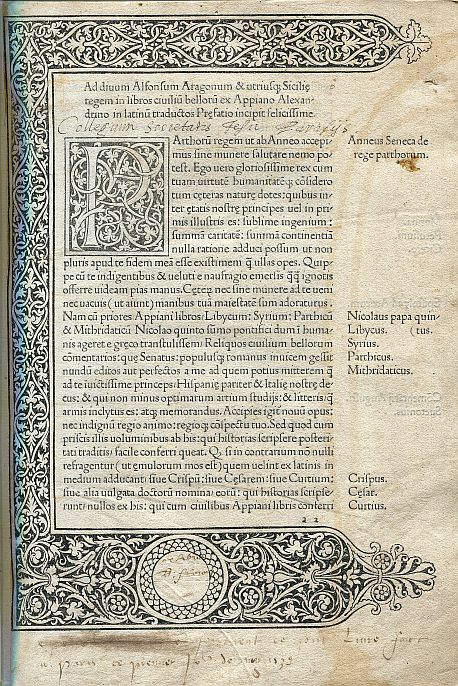 Ad diuum Alfonsum Aragonum & utriusq; Sicilię
regem in libros ciuiliū bellorū ex Appiano Alexan-
drino in latinū traductos Prefatio incipit felicissime.
Collegium Societatis Jesu Parisijs
PArthorū regem ut ab Anneo accepi
mus sine munere salutare nemo po
test. Ego uero gloriosissime rex cum
tuam uirtutē humanitatēq; cōsidero
tum cęteras naturę dotes: quibus in-
ter ętatis nostrę principes uel in pri-
mis illustris es: sublime ingenium:
summā caritatē: summā continentiā
nulla ratione adduci possum ut non
pluris apud te fidem meā esse existimem q̄ ullas opes. Quip-
pe cū te indigentibus & ueluti e naufragio emersis q̄q̄ ignotis
offerre uideam pias manus. Ceterę nec sine munere ad te ueni
nec uacuis (ut aiunt) manibus tuā maiestatē sum adoraturus.
Nam cū priores Appiani libros: Libycum: Syrium: Parthicū
& Mithridaticū Nicolao quinto sūmo pontifici dum ī huma-
nis ageret e gręco transtulissem: Reliquos ciuilium bellorum
cōmentarios: que Senatus: populusq; romanus inuicem gessit
nundū editos aut perfectos a me ad quem potius mitterem q̄
ad te iuictissime princeps: Hispanię pariter & Italię nostrę de-
cus: & qui non minus optimarum artium studijs: & litteris: q̄
armis inclytus es: atq; memorandus. Accipies igit nouū opus:
nec indignū regio animo: regioq; cōspectu tuo. Sed quod cum
priscis illis uoluminibus ab his: qui historias scripsere posteri-
tati traditis: facile conferri queat. Q; si in contrarium nō nulli
refragentur (ut emulorum mos est) quem uelint ex latinis in
medium adducant: siue Crispū: siue Cęsarem: siue Curtium:
siue alia uulgata doctorū nomina: eorū: qui historias scripse-
runt: nullos ex his: qui cum ciuilibus Appiani libris conferri
a 2
Anneus Seneca de
rege parthorum.
Nicolaus papa quin-
Libycus. (tus.
Syrius.
Parthicus.
Mithridaticus.
Crispus.
Cęsar.
Curtius.